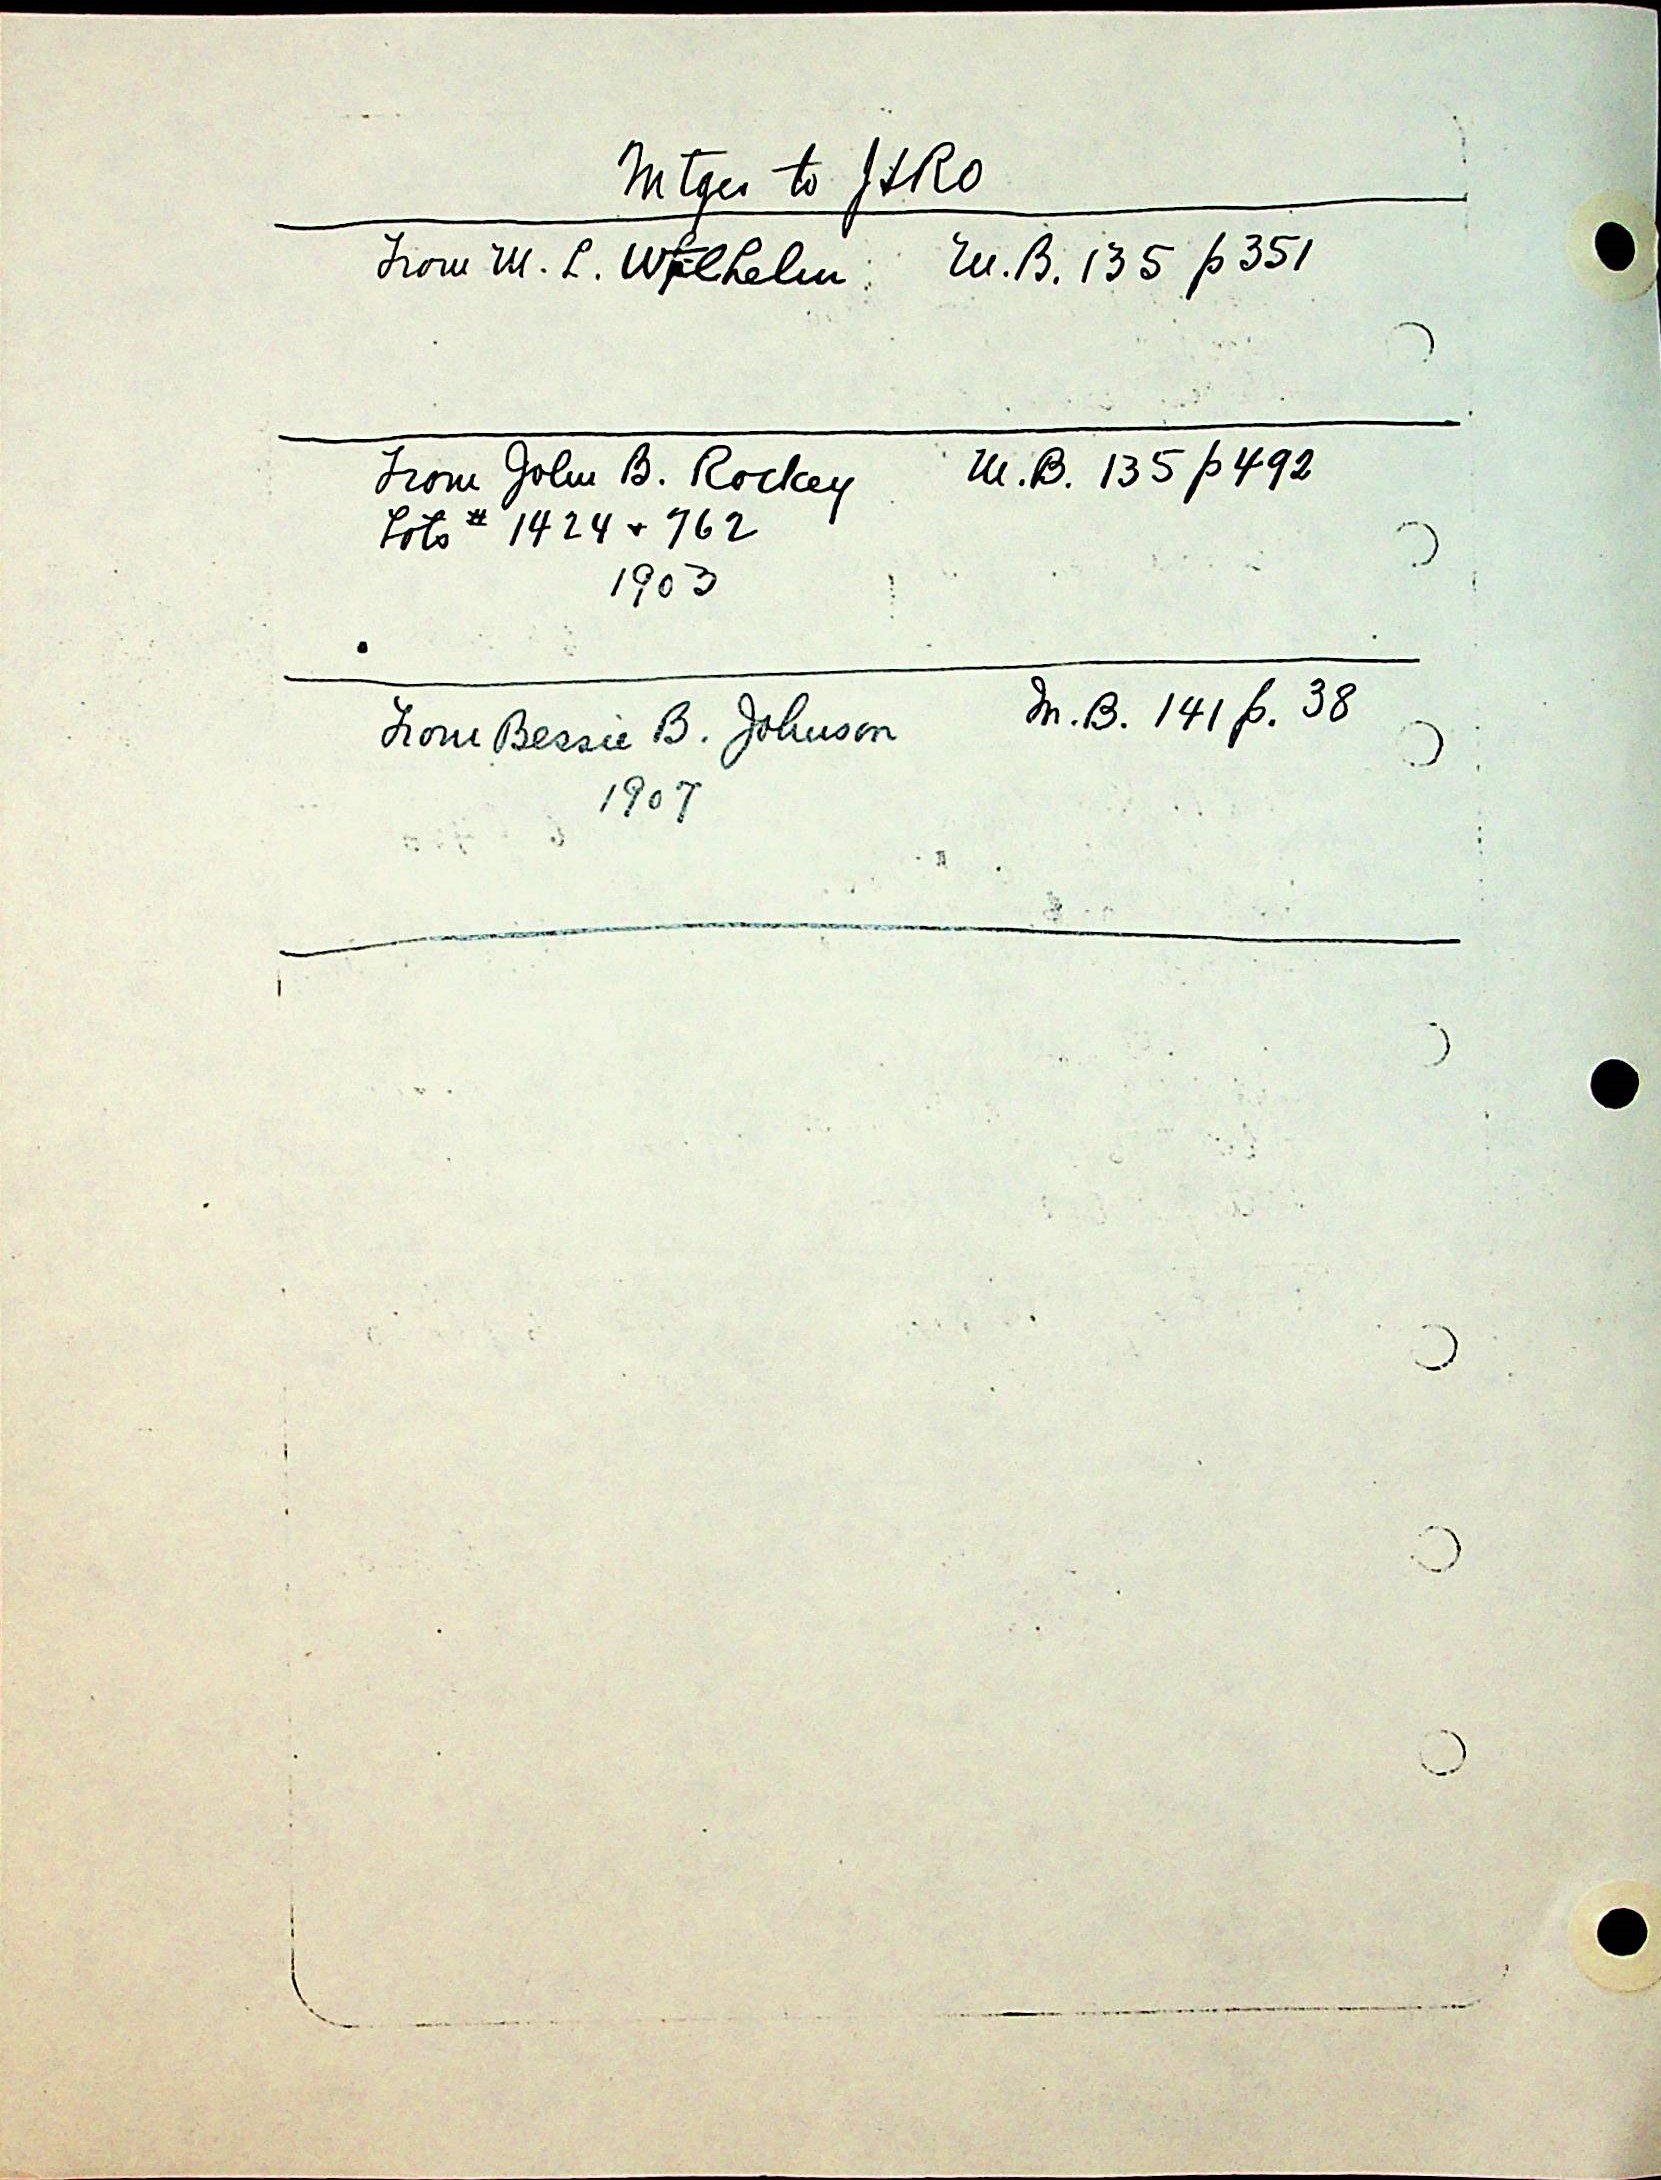 Mtges to J & RO
From M. L. Wilhelm M.B. 135 p 351
From John B. Rockey M.B. 135 p 492
Lots # 1424 + 762
1903
From Bessie B. Johnson M.B. 141 p. 38
1907